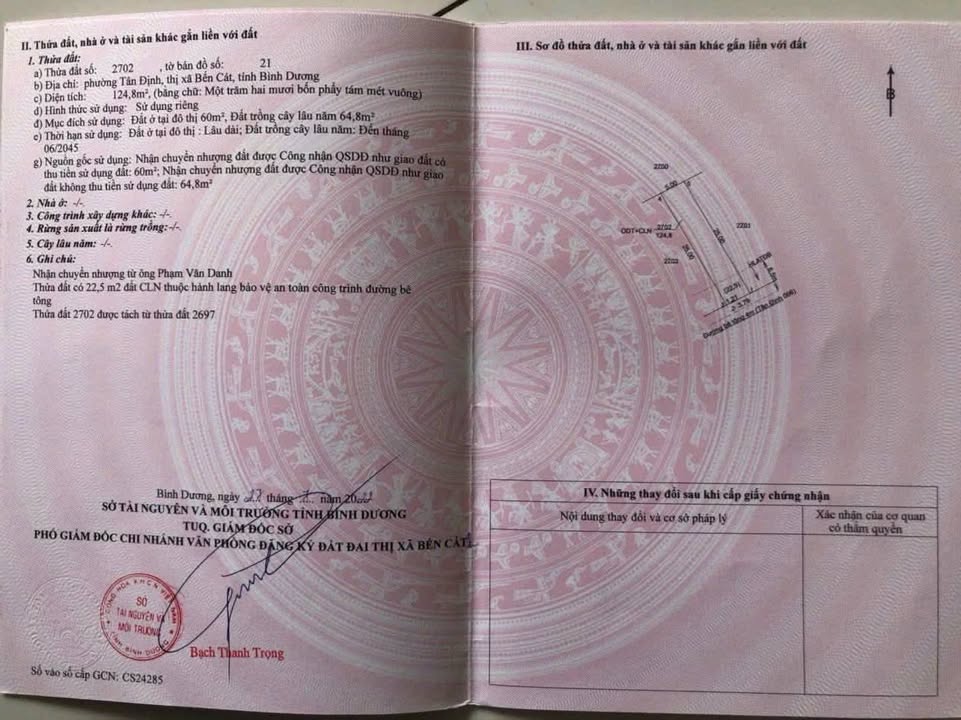 II. Thửa đất, nhà ở và tài sản khác gắn liền với đất
1. Thửa đất:
a) Thửa đất số: 2702 , tờ bản đồ số: 21
b) Địa chỉ: phường Tân Định, thị xã Bến Cát, tỉnh Bình Dương
c) Diện tích: 124,8m², (bằng chữ: Một trăm hai mươi bốn phẩy tám mét vuông)
d) Hình thức sử dụng: Sử dụng riêng
đ) Mục đích sử dụng: Đất ở tại đô thị 60m², Đất trồng cây lâu năm 64,8m²
e) Thời hạn sử dụng: Đất ở tại đô thị : Lâu dài; Đất trồng cây lâu năm: Đến tháng
06/2045
g) Nguồn gốc sử dụng: Nhận chuyển nhượng đất được Công nhận QSDĐ như giao đất có
thu tiền sử dụng đất: 60m²; Nhận chuyển nhượng đất được Công nhận QSDĐ như giao
đất không thu tiền sử dụng đất: 64,8m²
2. Nhà ở: -/-.
3. Công trình xây dựng khác: -/-.
4. Rừng sản xuất là rừng trồng:-/-.
5. Cây lâu năm: -/-.
6. Ghi chú:
Nhận chuyển nhượng từ ông Phạm Văn Danh
Thửa đất có 22,5 m2 đất CLN thuộc hành lang bảo vệ an toàn công trình đường bê
tông
Thửa đất 2702 được tách từ thửa đất 2697
Bình Dương, ngày 27 tháng năm 2022
SỞ TÀI NGUYÊN VÀ MÔI TRƯỜNG TỈNH BÌNH DƯƠNG
TUQ. GIÁM ĐỐC SỞ
PHÓ GIÁM ĐỐC CHI NHÁNH VĂN PHÒNG ĐĂNG KÝ ĐẤT ĐAI THỊ XÃ BẾN CÁT
CỘNG HÒA X.H.C.N VIỆT NAM
SỞ
TÀI NGUYÊN VÀ
MÔI TRƯỜNG
TỈNH BÌNH DƯƠNG
Bạch Thanh Trọng
Số vào sổ cấp GCN: CS24285
III. Sơ đồ thửa đất, nhà ở và tài sản khác gắn liền với đất
B
2700
5.00
ODT+CLN
2702
124.8
2701
25.00
25.00
2703
HLATĐB
(22.5)
1.21
3.79
Đường bê tông 6m (Tân Định 066)
IV. Những thay đổi sau khi cấp giấy chứng nhận
Nội dung thay đổi và cơ sở pháp lý
Xác nhận của cơ quan
có thẩm quyền